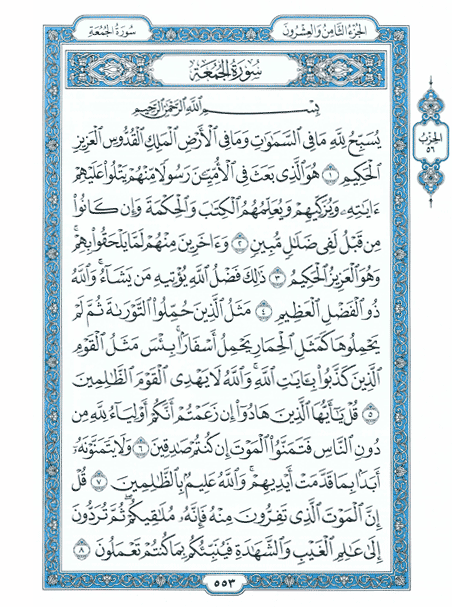 سُورَةُ الجُمُعَةِ
الجُزْءُ الثَّامِنُ وَالعِشْرُونَ
سُورَةُ الجُمُعَةِ
الحِزْبُ
٥٦
بِسْمِ ٱللَّهِ ٱلرَّحْمَٰنِ ٱلرَّحِيمِ
يُسَبِّحُ لِلَّهِ مَا فِي ٱلسَّمَٰوَٰتِ وَمَا فِي ٱلْأَرْضِ ٱلْمَلِكِ ٱلْقُدُّوسِ ٱلْعَزِيزِ
ٱلْحَكِيمِ ١ هُوَ ٱلَّذِي بَعَثَ فِي ٱلْأُمِّيِّـۧنَ رَسُولًا مِّنْهُمْ يَتْلُوا۟ عَلَيْهِمْ
ءَايَٰتِهِۦ وَيُزَكِّيهِمْ وَيُعَلِّمُهُمُ ٱلْكِتَٰبَ وَٱلْحِكْمَةَ وَإِن كَانُوا۟
مِن قَبْلُ لَفِي ضَلَٰلٍ مُّبِينٍ ٢ وَءَاخَرِينَ مِنْهُمْ لَمَّا يَلْحَقُوا۟ بِهِمْ ۚ
وَهُوَ ٱلْعَزِيزُ ٱلْحَكِيمُ ٣ ذَٰلِكَ فَضْلُ ٱللَّهِ يُؤْتِيهِ مَن يَشَآءُ ۚ وَٱللَّهُ
ذُو ٱلْفَضْلِ ٱلْعَظِيمِ ٤ مَثَلُ ٱلَّذِينَ حُمِّلُوا۟ ٱلتَّوْرَىٰةَ ثُمَّ لَمْ
يَحْمِلُوهَا كَمَثَلِ ٱلْحِمَارِ يَحْمِلُ أَسْفَارًۢا ۚ بِئْسَ مَثَلُ ٱلْقَوْمِ
ٱلَّذِينَ كَذَّبُوا۟ بِـَٔايَٰتِ ٱللَّهِ ۚ وَٱللَّهُ لَا يَهْدِي ٱلْقَوْمَ ٱلظَّٰلِمِينَ
٥ قُلْ يَٰٓأَيُّهَا ٱلَّذِينَ هَادُوٓا۟ إِن زَعَمْتُمْ أَنَّكُمْ أَوْلِيَآءُ لِلَّهِ مِن
دُونِ ٱلنَّاسِ فَتَمَنَّوُا۟ ٱلْمَوْتَ إِن كُنتُمْ صَٰدِقِينَ ٦ وَلَا يَتَمَنَّوْنَهُۥٓ
أَبَدًۢا بِمَا قَدَّمَتْ أَيْدِيهِمْ ۚ وَٱللَّهُ عَلِيمٌۢ بِٱلظَّٰلِمِينَ ٧ قُلْ
إِنَّ ٱلْمَوْتَ ٱلَّذِي تَفِرُّونَ مِنْهُ فَإِنَّهُۥ مُلَٰقِيكُمْ ۖ ثُمَّ تُرَدُّونَ
إِلَىٰ عَٰلِمِ ٱلْغَيْبِ وَٱلشَّهَٰدَةِ فَيُنَبِّئُكُم بِمَا كُنتُمْ تَعْمَلُونَ ٨
٥٥٣